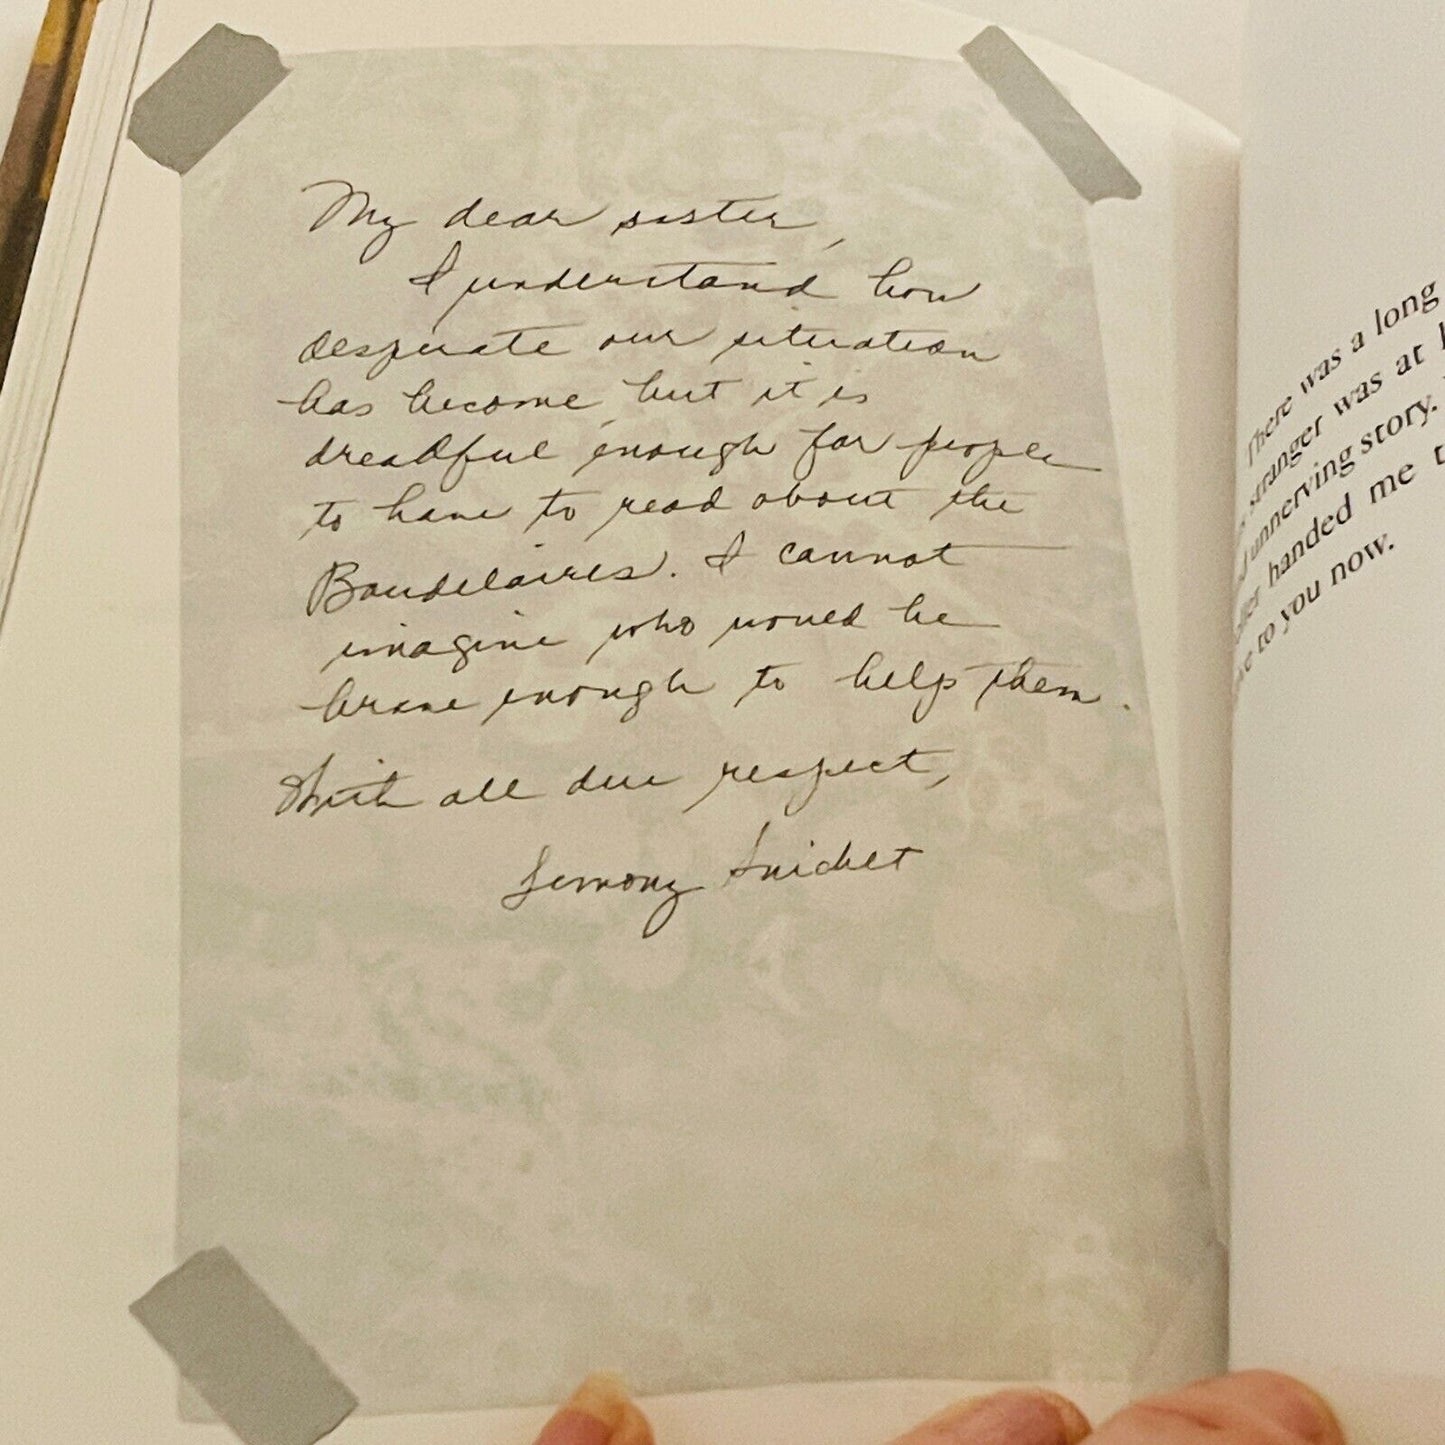 My dear sister,
I understand how
desperate our situation
has become, but it is
dreadful enough for people
to have to read about the
Baudelaires. I cannot
imagine who would be
brave enough to help them.
With all due respect,
Lemony Snicket
There was a long
stranger was at
unnerving story.
handed me
to you now.